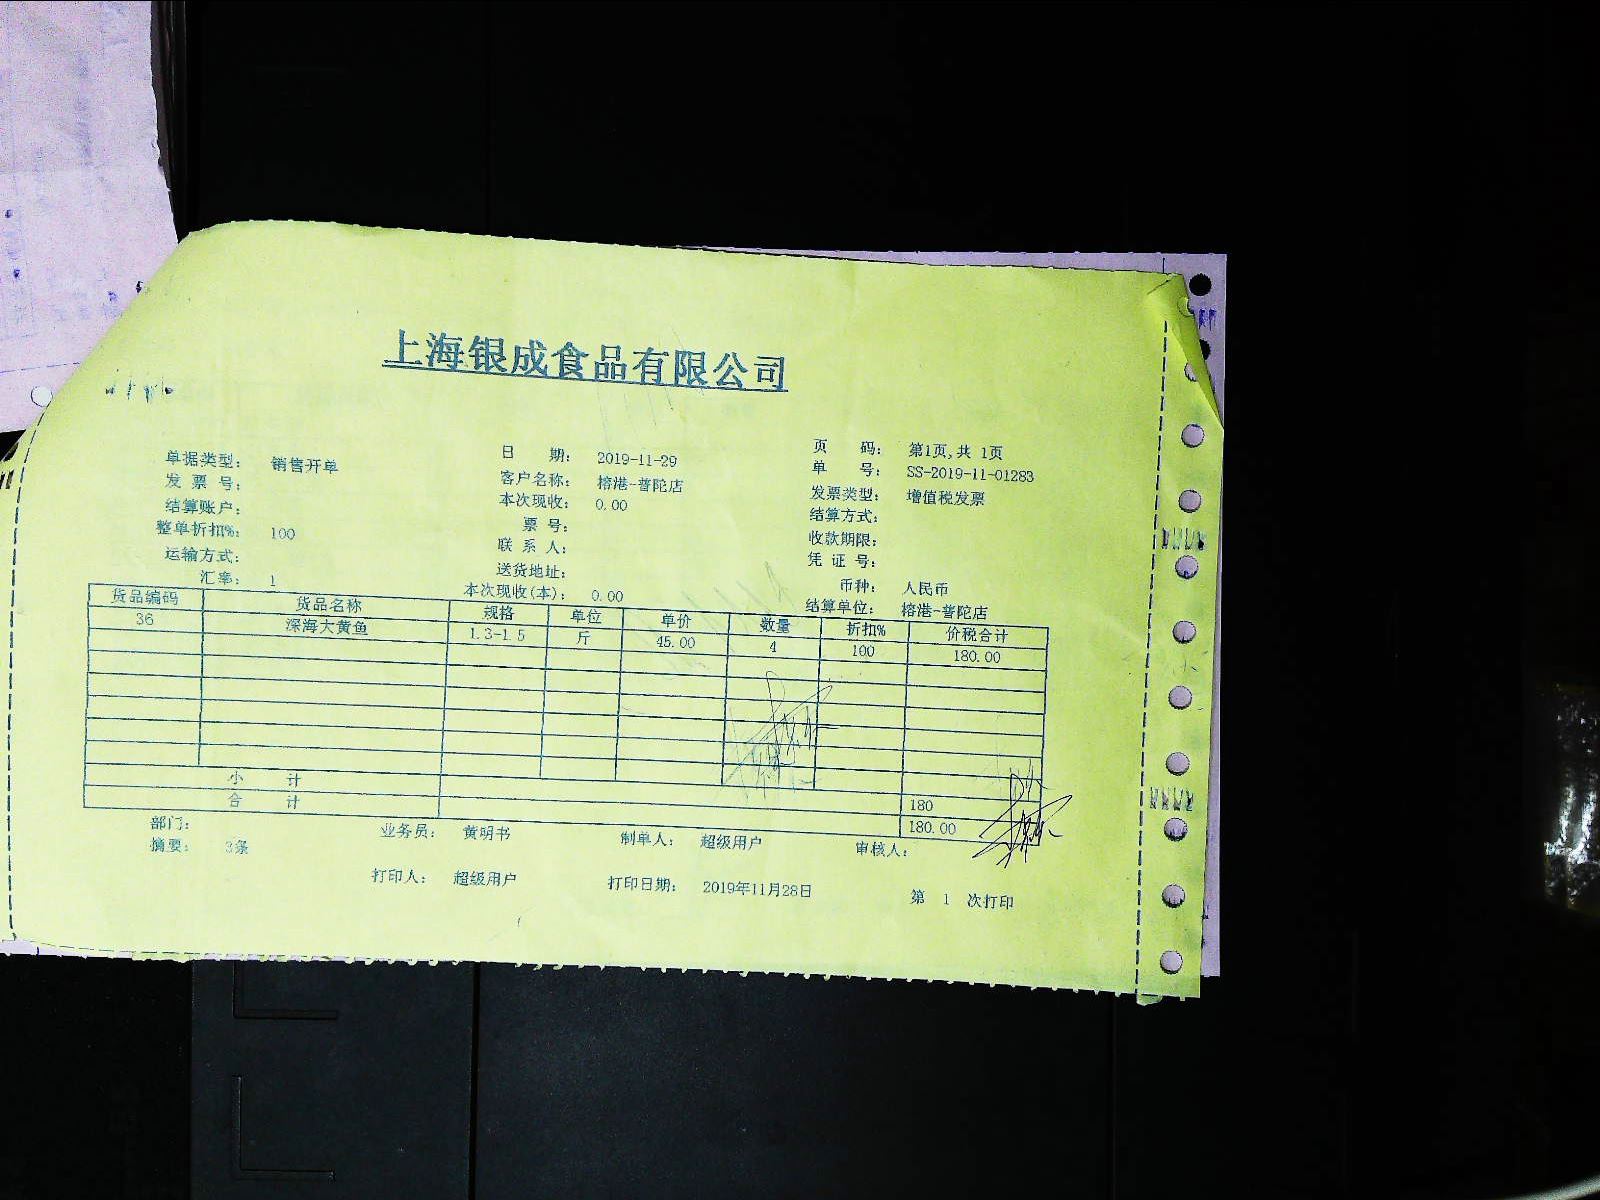 上海银成食品有限公司
单据类型： 销售开单 日 期： 2019-11-29 页 码： 第1页,共 1页
发 票 号： 客户名称： 榕港-普陀店 单 号： SS-2019-11-01283
结算账户： 本次现收： 0.00 发票类型： 增值税发票
整单折扣%： 100 票 号： 结算方式：
运输方式： 联 系 人： 收款期限：
汇率： 1 送货地址： 凭 证 号：
本次现收(本)： 0.00 币种： 人民币
结算单位： 榕港-普陀店
货品编码 货品名称 规格 单位 单价 数量 折扣% 价税合计
36 深海大黄鱼 1.3-1.5 斤 45.00 4 100 180.00
小 计 180
合 计 180.00
部门： 业务员： 黄明书 制单人： 超级用户 审核人：
摘要： 3条
打印人： 超级用户 打印日期： 2019年11月28日 第 1 次打印